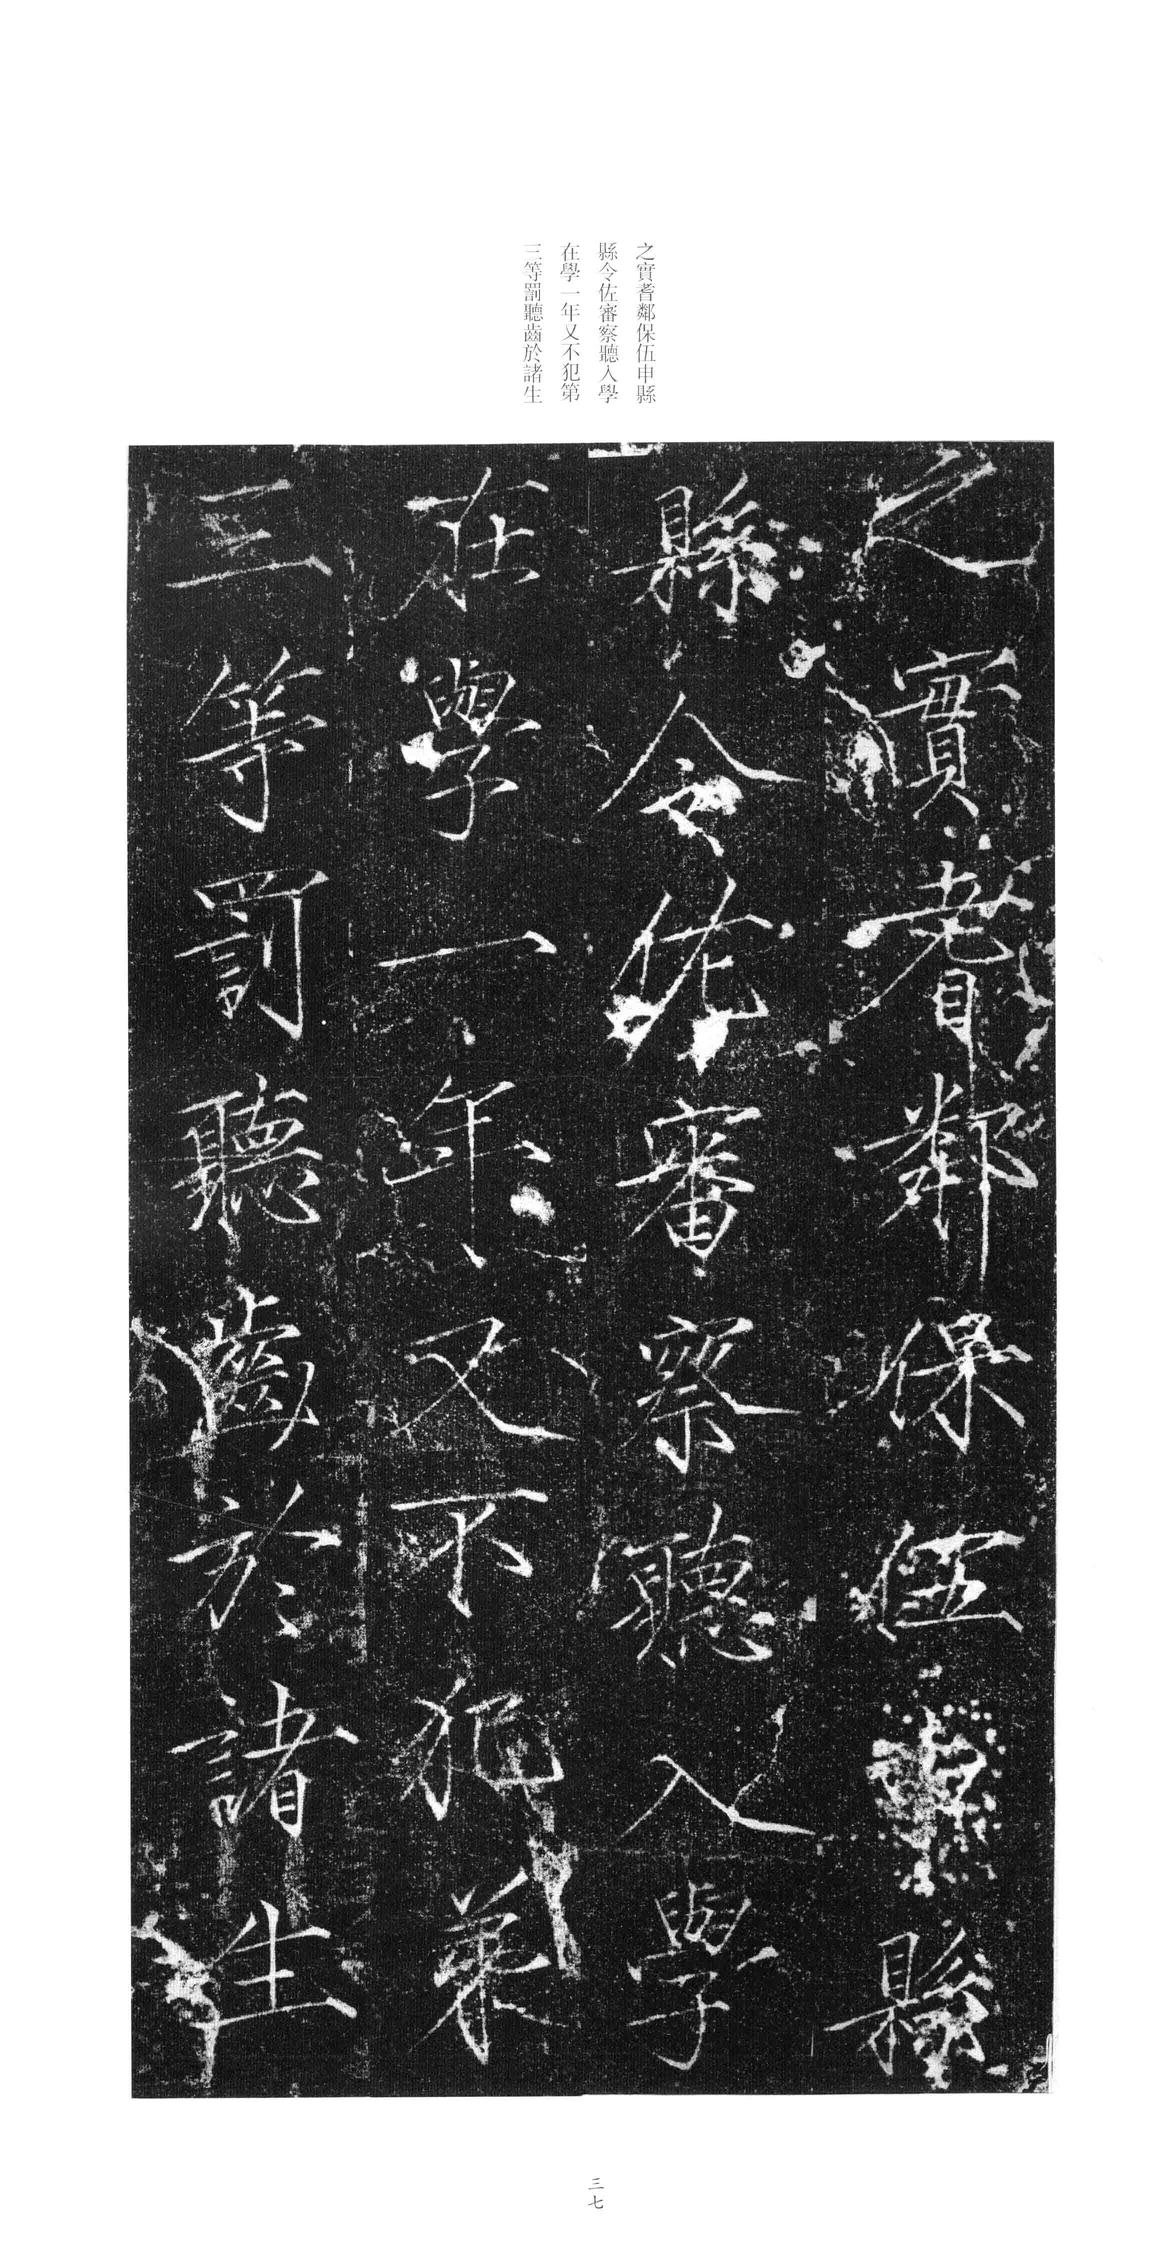 之實耆鄰保伍申縣
縣令佐審察聽入學
在學一年又不犯第
三等罰聽齒於諸生
之實耆鄰保伍申縣
縣令佐審察聽入學
在學一年又不犯第
三等罰聽齒於諸生
三七